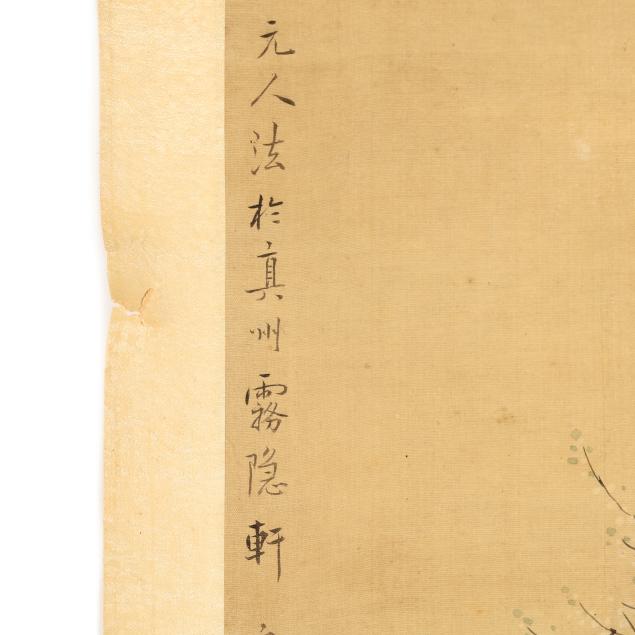 元人法於真州霧隐軒